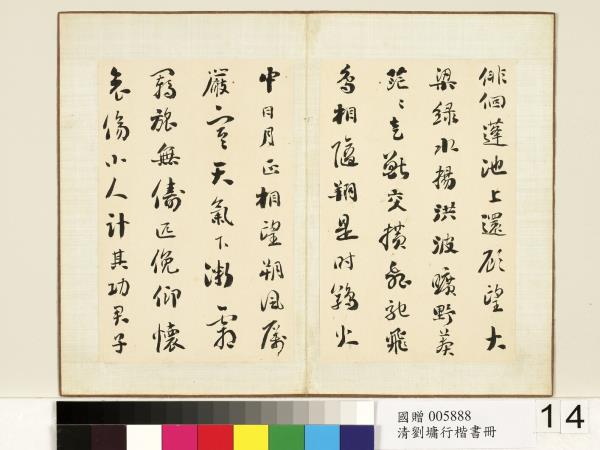 俳佪蓬池上還顧望大
梁綠水揚洪波曠野莽
茫〻走獸交橫馳飛
鳥相隨翔是時鶉火
中日月正相望朔風厲
嚴寒天氣下微霜
羈旅無儔匹俛仰懷
哀傷小人計其功君子
國贈 005888
清劉墉行楷書冊
14